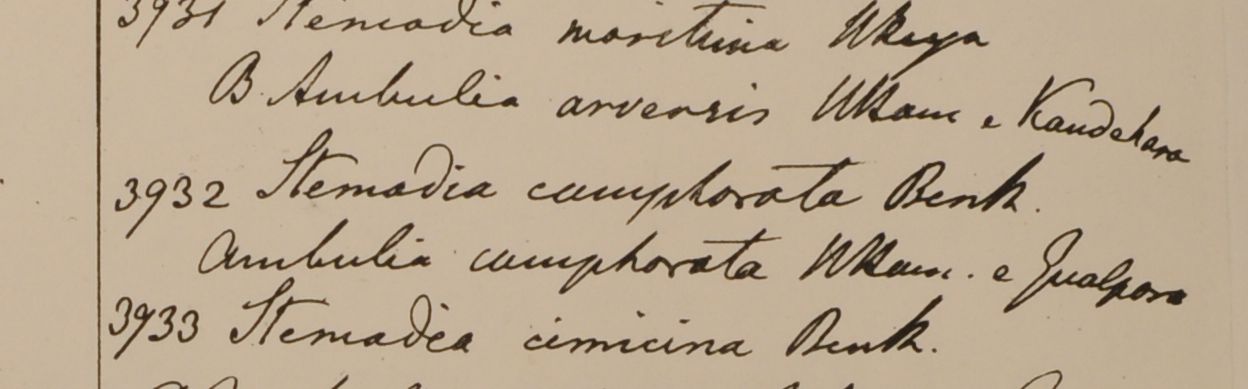 3931 Stemodia maritima
B Ambulia arvensis Wham e Kandehara
3932 Stemodia camphorata Benth.
Ambulia camphorata Wham. e Gualpara
3933 Stemodia cimicina Benth.